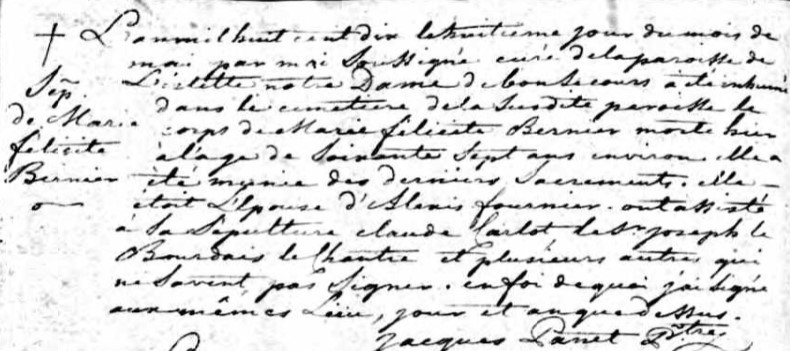 L'an mil huit cent dix le huitieme jour du mois de
mai par moi Soussigné curé de la paroisse de
L'islette notre Dame de bon Secours a été inhumé
dans le cimetiere de la Susdite paroisse le
corps de Marie félicité Bernier morte hier
à l'age de Soixante Sept ans environ. elle a
été munie des derniers Sacrements. elle
étoit L'Epouse d'Alexis fournier. ont assisté
à Sa Sépulture claude Carlot le Sr. joseph le
Bourdais le Chantre et plusieurs autres qui
ne Savent pas Signer. en foi de quoi j'ai Signé
aux mêmes Lieu, jour et an que dessus.
Jacques Panet Ptre
+
Sep.
de Marie
félicité
Bernier